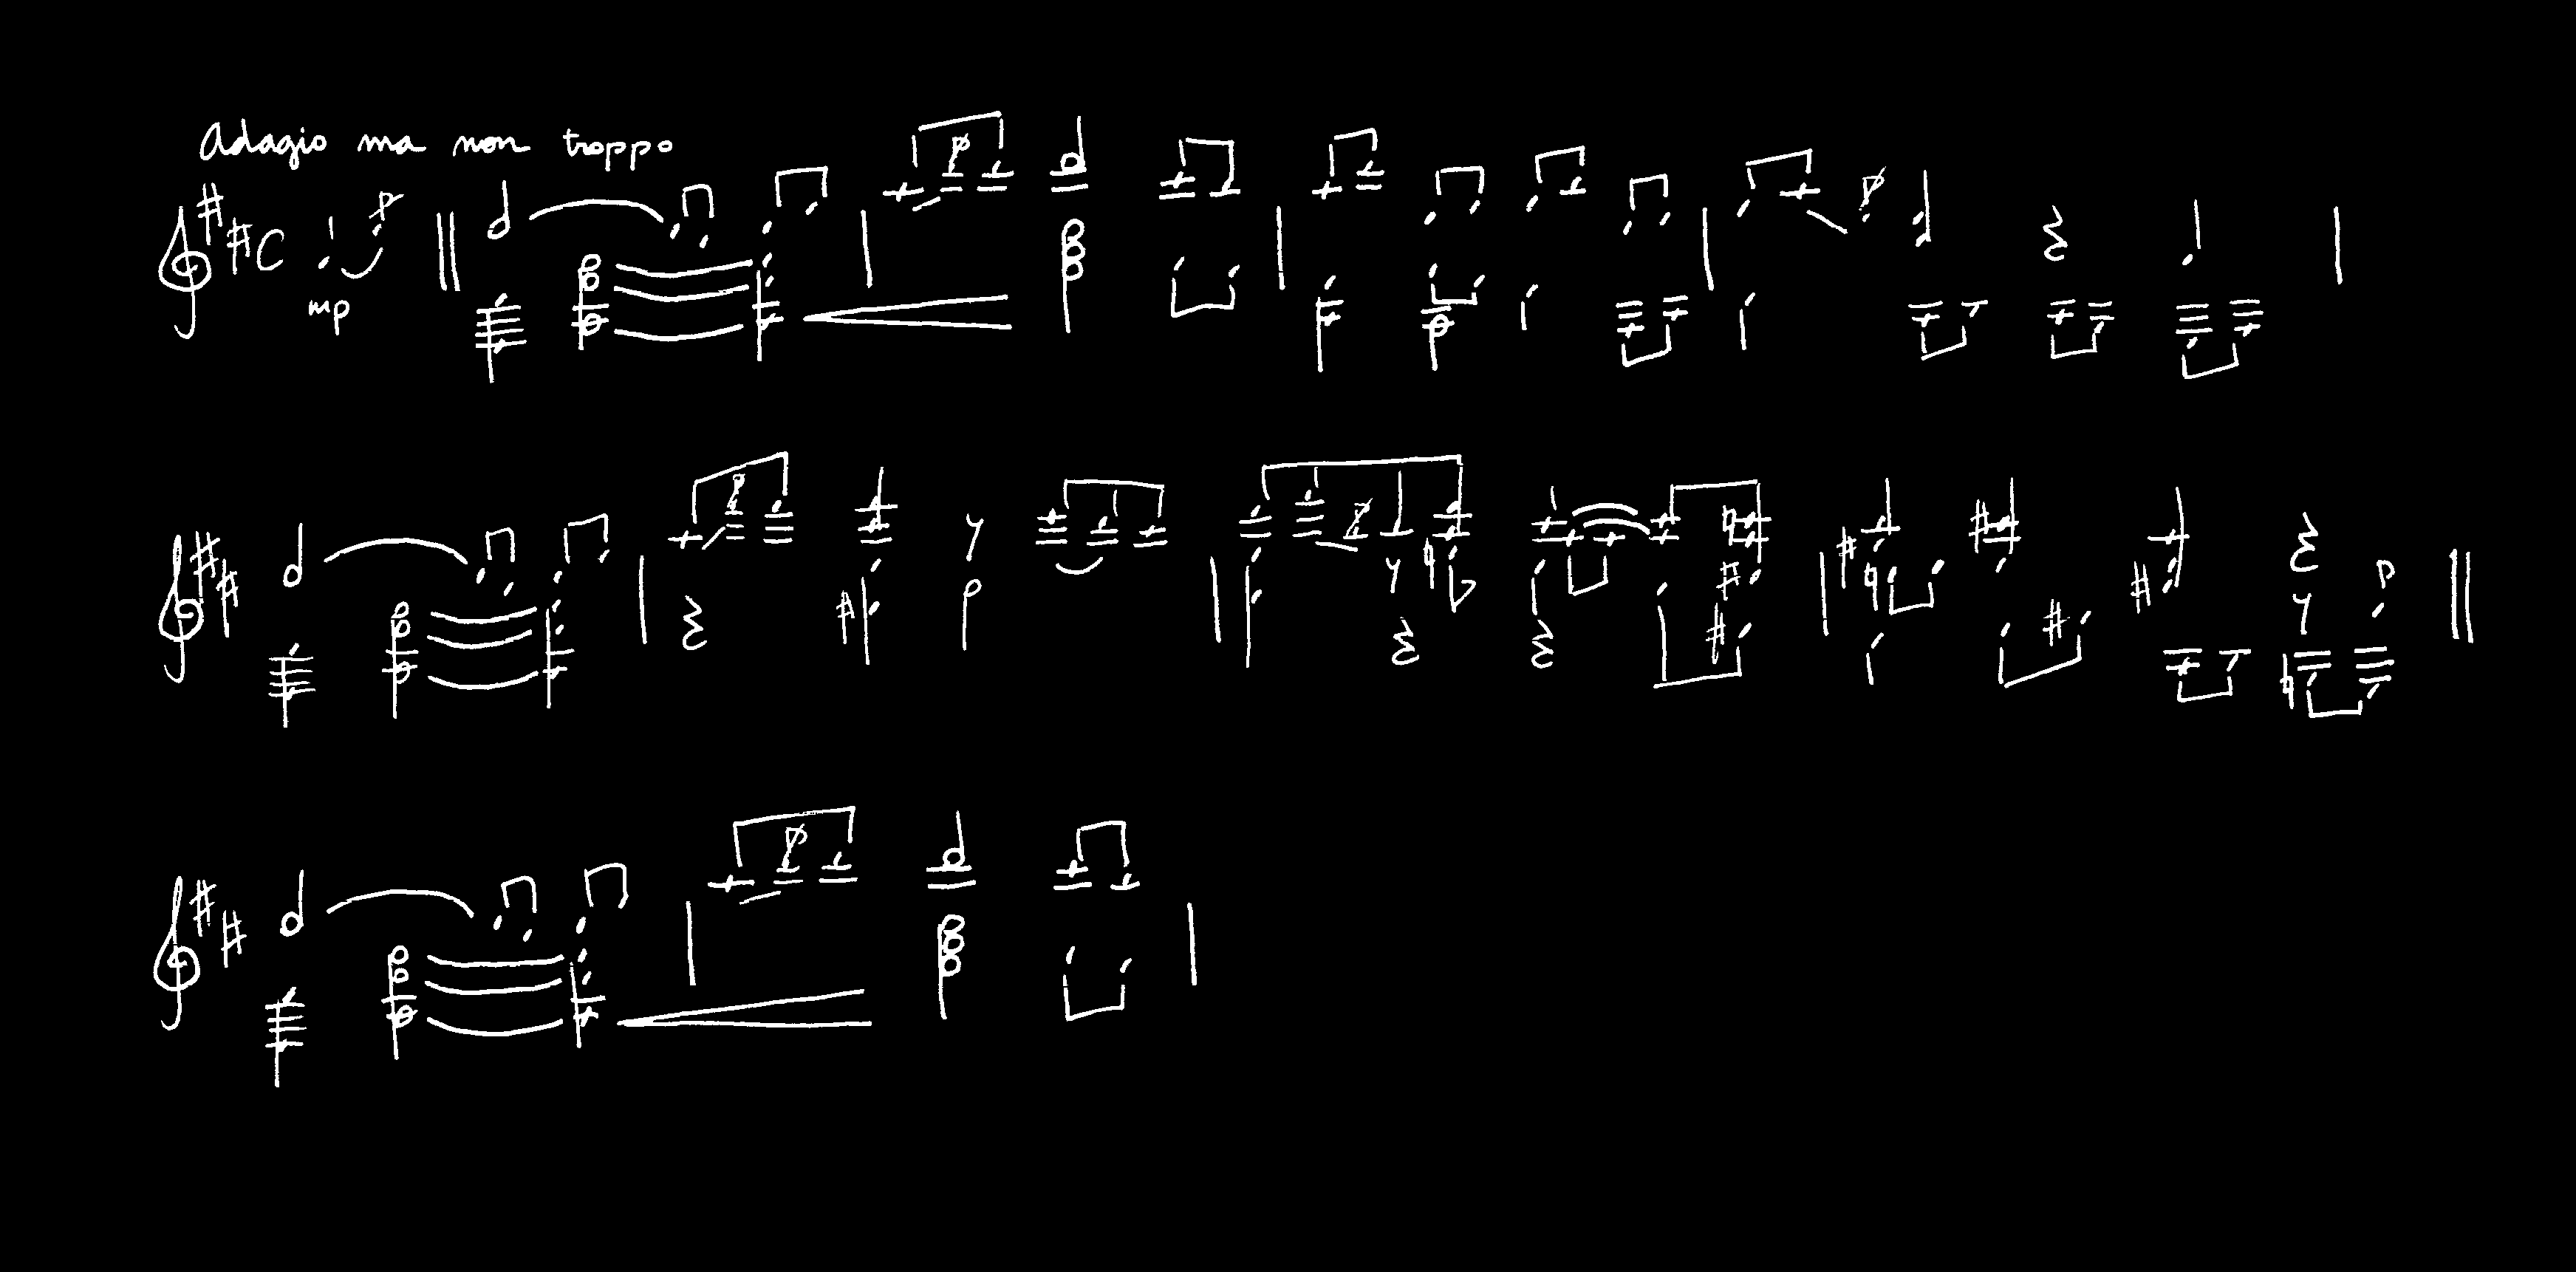 Adagio ma non troppo
mp